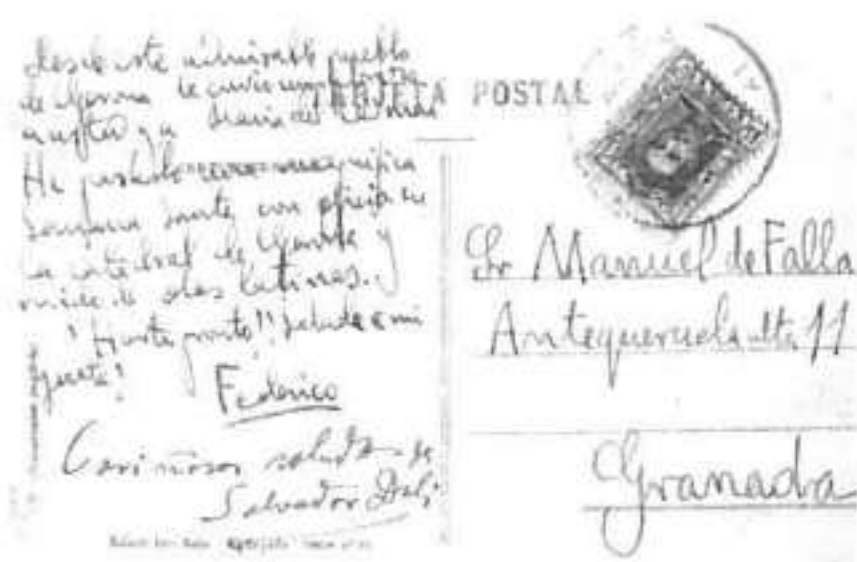 desde este admirable pueblo
de Gerona le envio un
a usted y a Maria del Carmen
He pasado una magnifica
Semana Santa con oficio en
la catedral de Gerona y
ruido de olas latinas.
¡Hasta pronto!! Saluda a mi
gente!
Federico
Cariñosos saludos de
Salvador Dalí
TARJETA POSTAL
Sr Manuel de Falla
Antequeruela alta 11
Granada